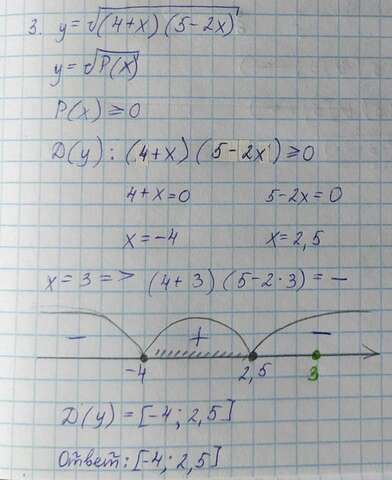 3. y = √((4+x)(5-2x))
y = √P(x)
P(x) ⩾ 0
D(y): (4+x)(5-2x) ⩾ 0
4+x=0 5-2x=0
x=-4 x=2,5
x=3 => (4+3)(5-2·3) = -
- + -
-4 2,5 3
D(y) = [-4; 2,5]
Ответ: [-4; 2,5]